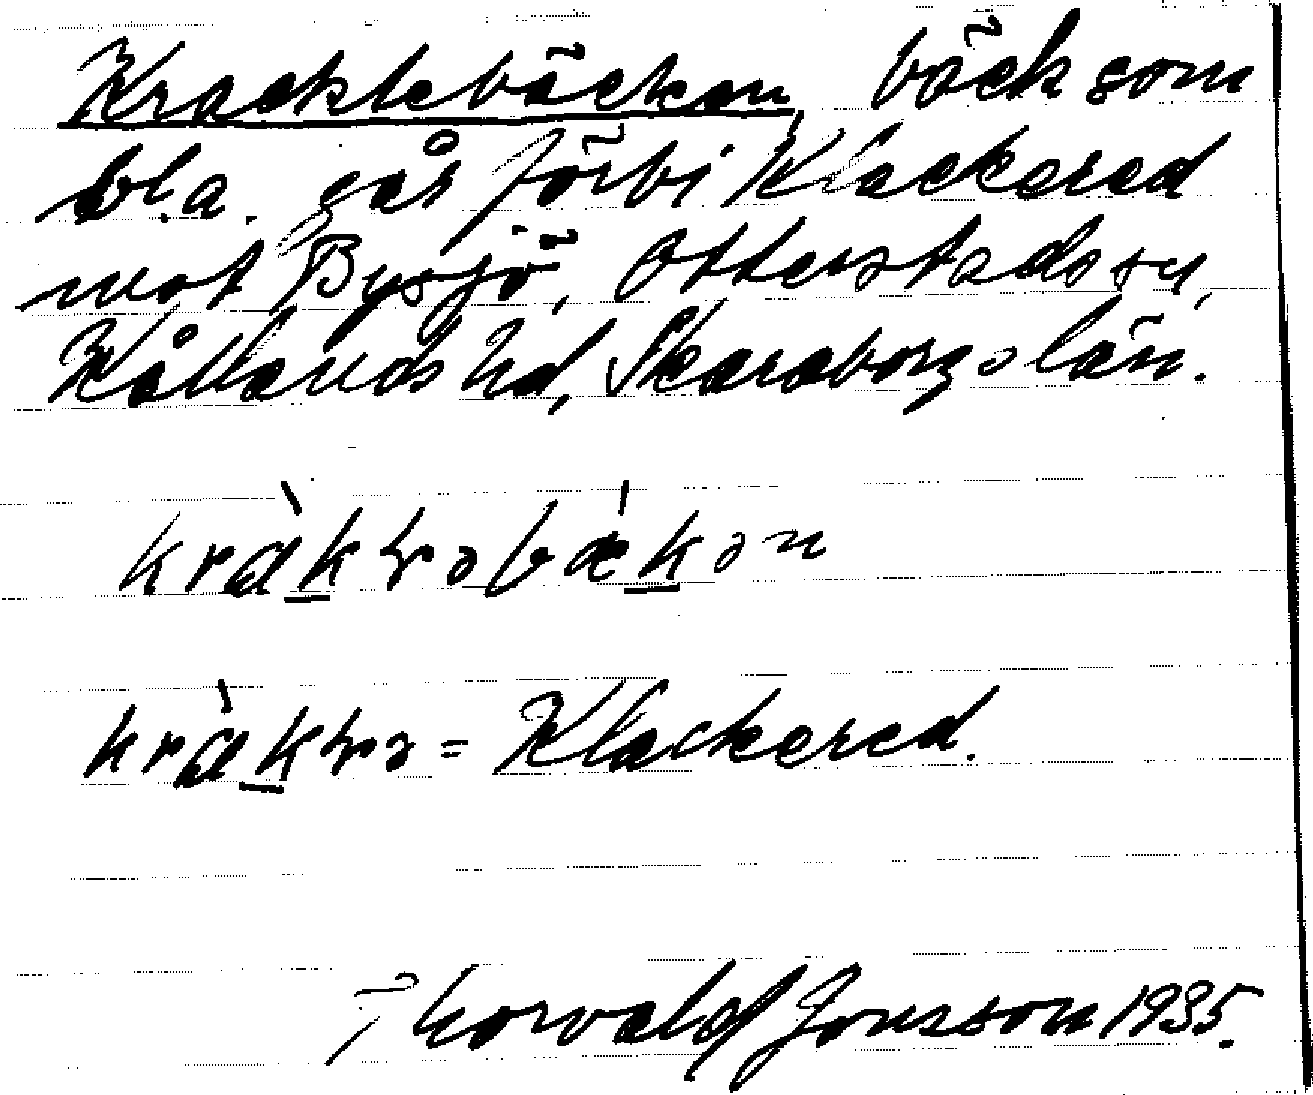 Kracklebäcken, bäck som
bl.a. går förbi Klackered
mot Bysjö, Otterstads sn,
Kållands hd, Skaraborgs län.
Klackered.
Thorvald Jonsson 1935.